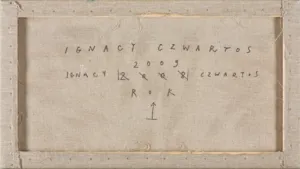 IGNACY CZWARTOS
2009
IGNACY CZWARTOS
ROK